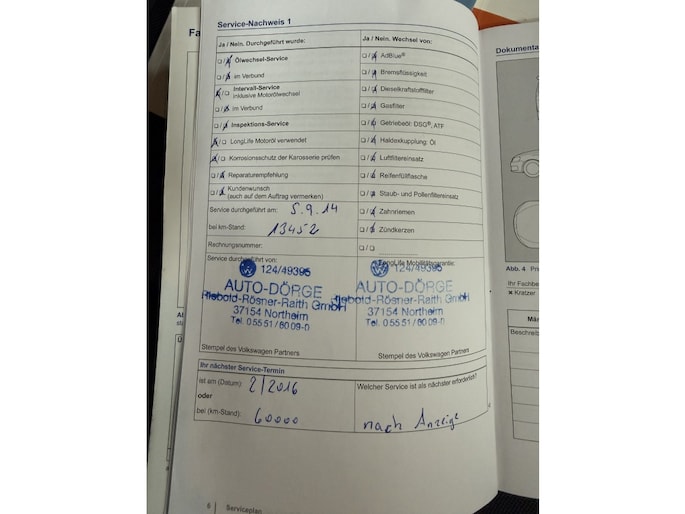 Service-Nachweis 1
Ja / Nein. Durchgeführt wurde:
Ölwechsel-Service
im Verbund
Intervall-Service
inklusive Motorölwechsel
im Verbund
Inspektions-Service
LongLife Motoröl verwendet
Korrosionsschutz der Karosserie prüfen
Reparaturempfehlung
Kundenwunsch
(auch auf dem Auftrag vermerken)
Service durchgeführt am: 5.9.14
bei km-Stand: 13452
Rechnungsnummer:
Ja / Nein. Wechsel von:
AdBlue®
Bremsflüssigkeit
Dieselkraftstofffilter
Gasfilter
Getriebeöl: DSG®, ATF
Haldexkupplung: Öl
Luftfiltereinsatz
Reifenfüllflasche
Staub- und Pollenfiltereinsatz
Zahnriemen
Zündkerzen
Service durchgeführt von:
124/49395
AUTO-DÖRGE
Riebold-Rösner-Raith GmbH
37154 Northeim
Tel. 05551/6009-0
Stempel des Volkswagen Partners
LongLife Mobilitätsgarantie:
124/49395
AUTO-DÖRGE
Riebold-Rösner-Raith GmbH
37154 Northeim
Tel. 05551/6009-0
Stempel des Volkswagen Partners
Ihr nächster Service-Termin
ist am (Datum): 2/2016
oder
bei (km-Stand): 60000
Welcher Service ist als nächster erforderlich?
nach Anzeige
6 Serviceplan
Dokumenta
Abb. 4
Ihr Fachbe
Kratzer
Beschreib